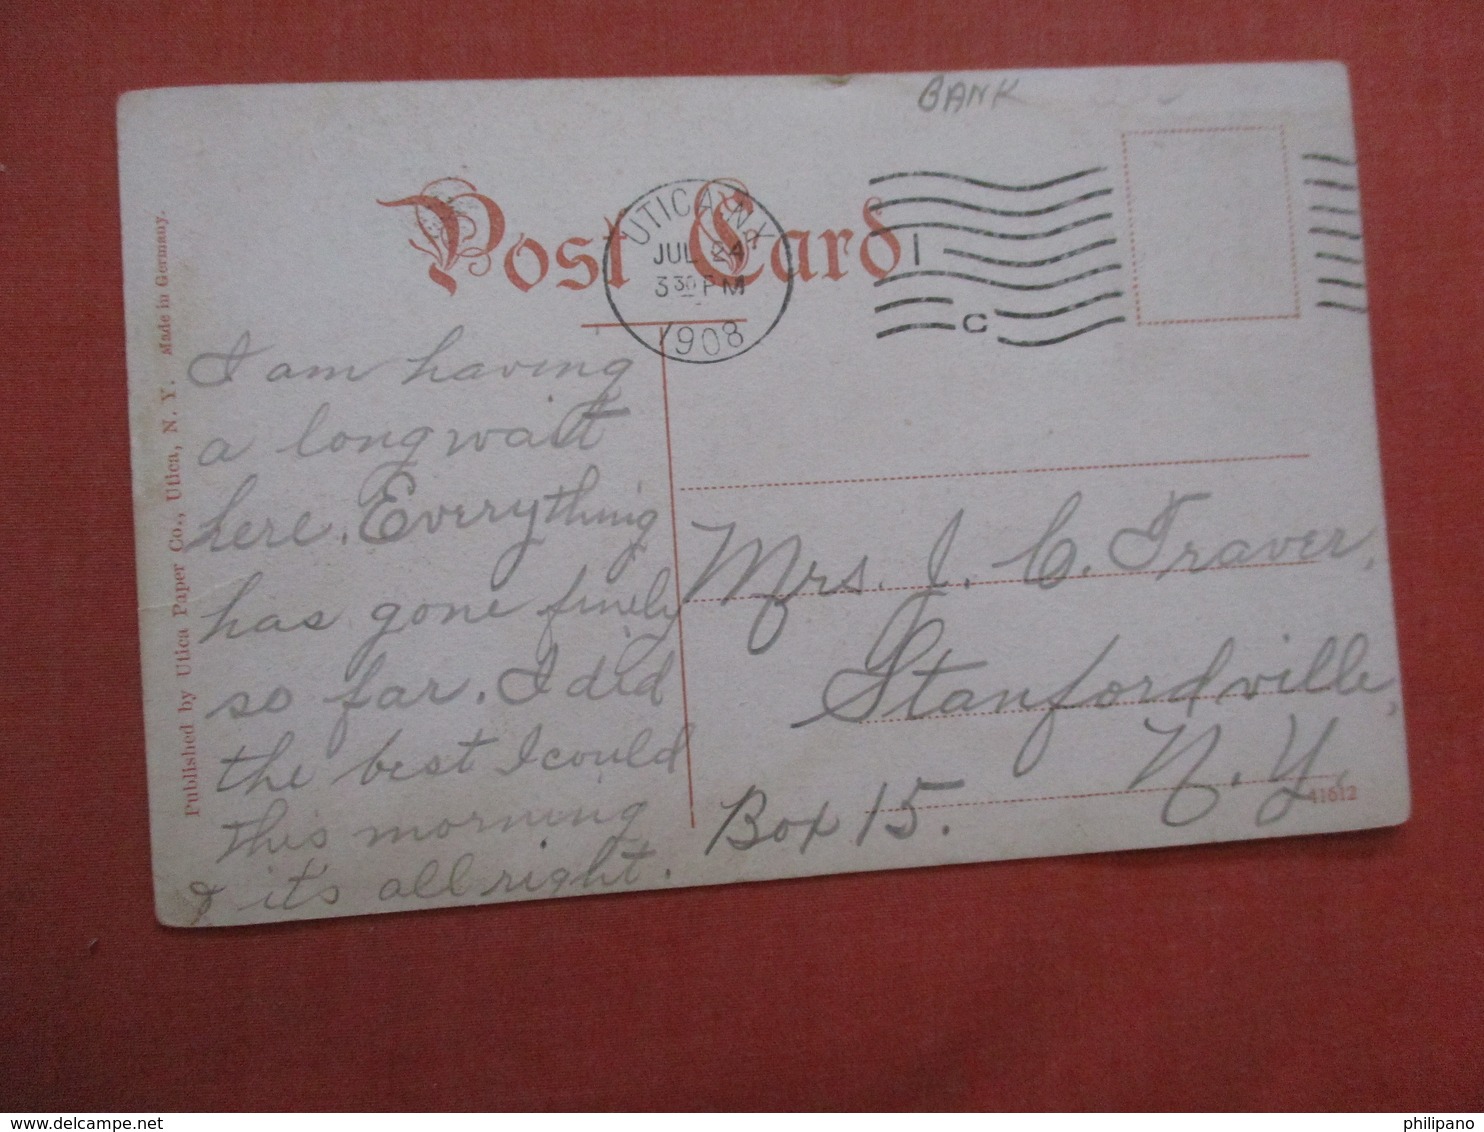 BANK
Post Card
UTICA N.Y.
JUL 24
3 30 PM
1908
1
C
I am having
a long wait
here. Everything
has gone finely
so far. I did
the best I could
this morning
& it's all right.
Mrs. J. C. Traver,
Stanfordville,
N. Y.
Box 15.
41612
Published by Utica Paper Co., Utica, N. Y. Made in Germany.
www.delcampe.net
philipano